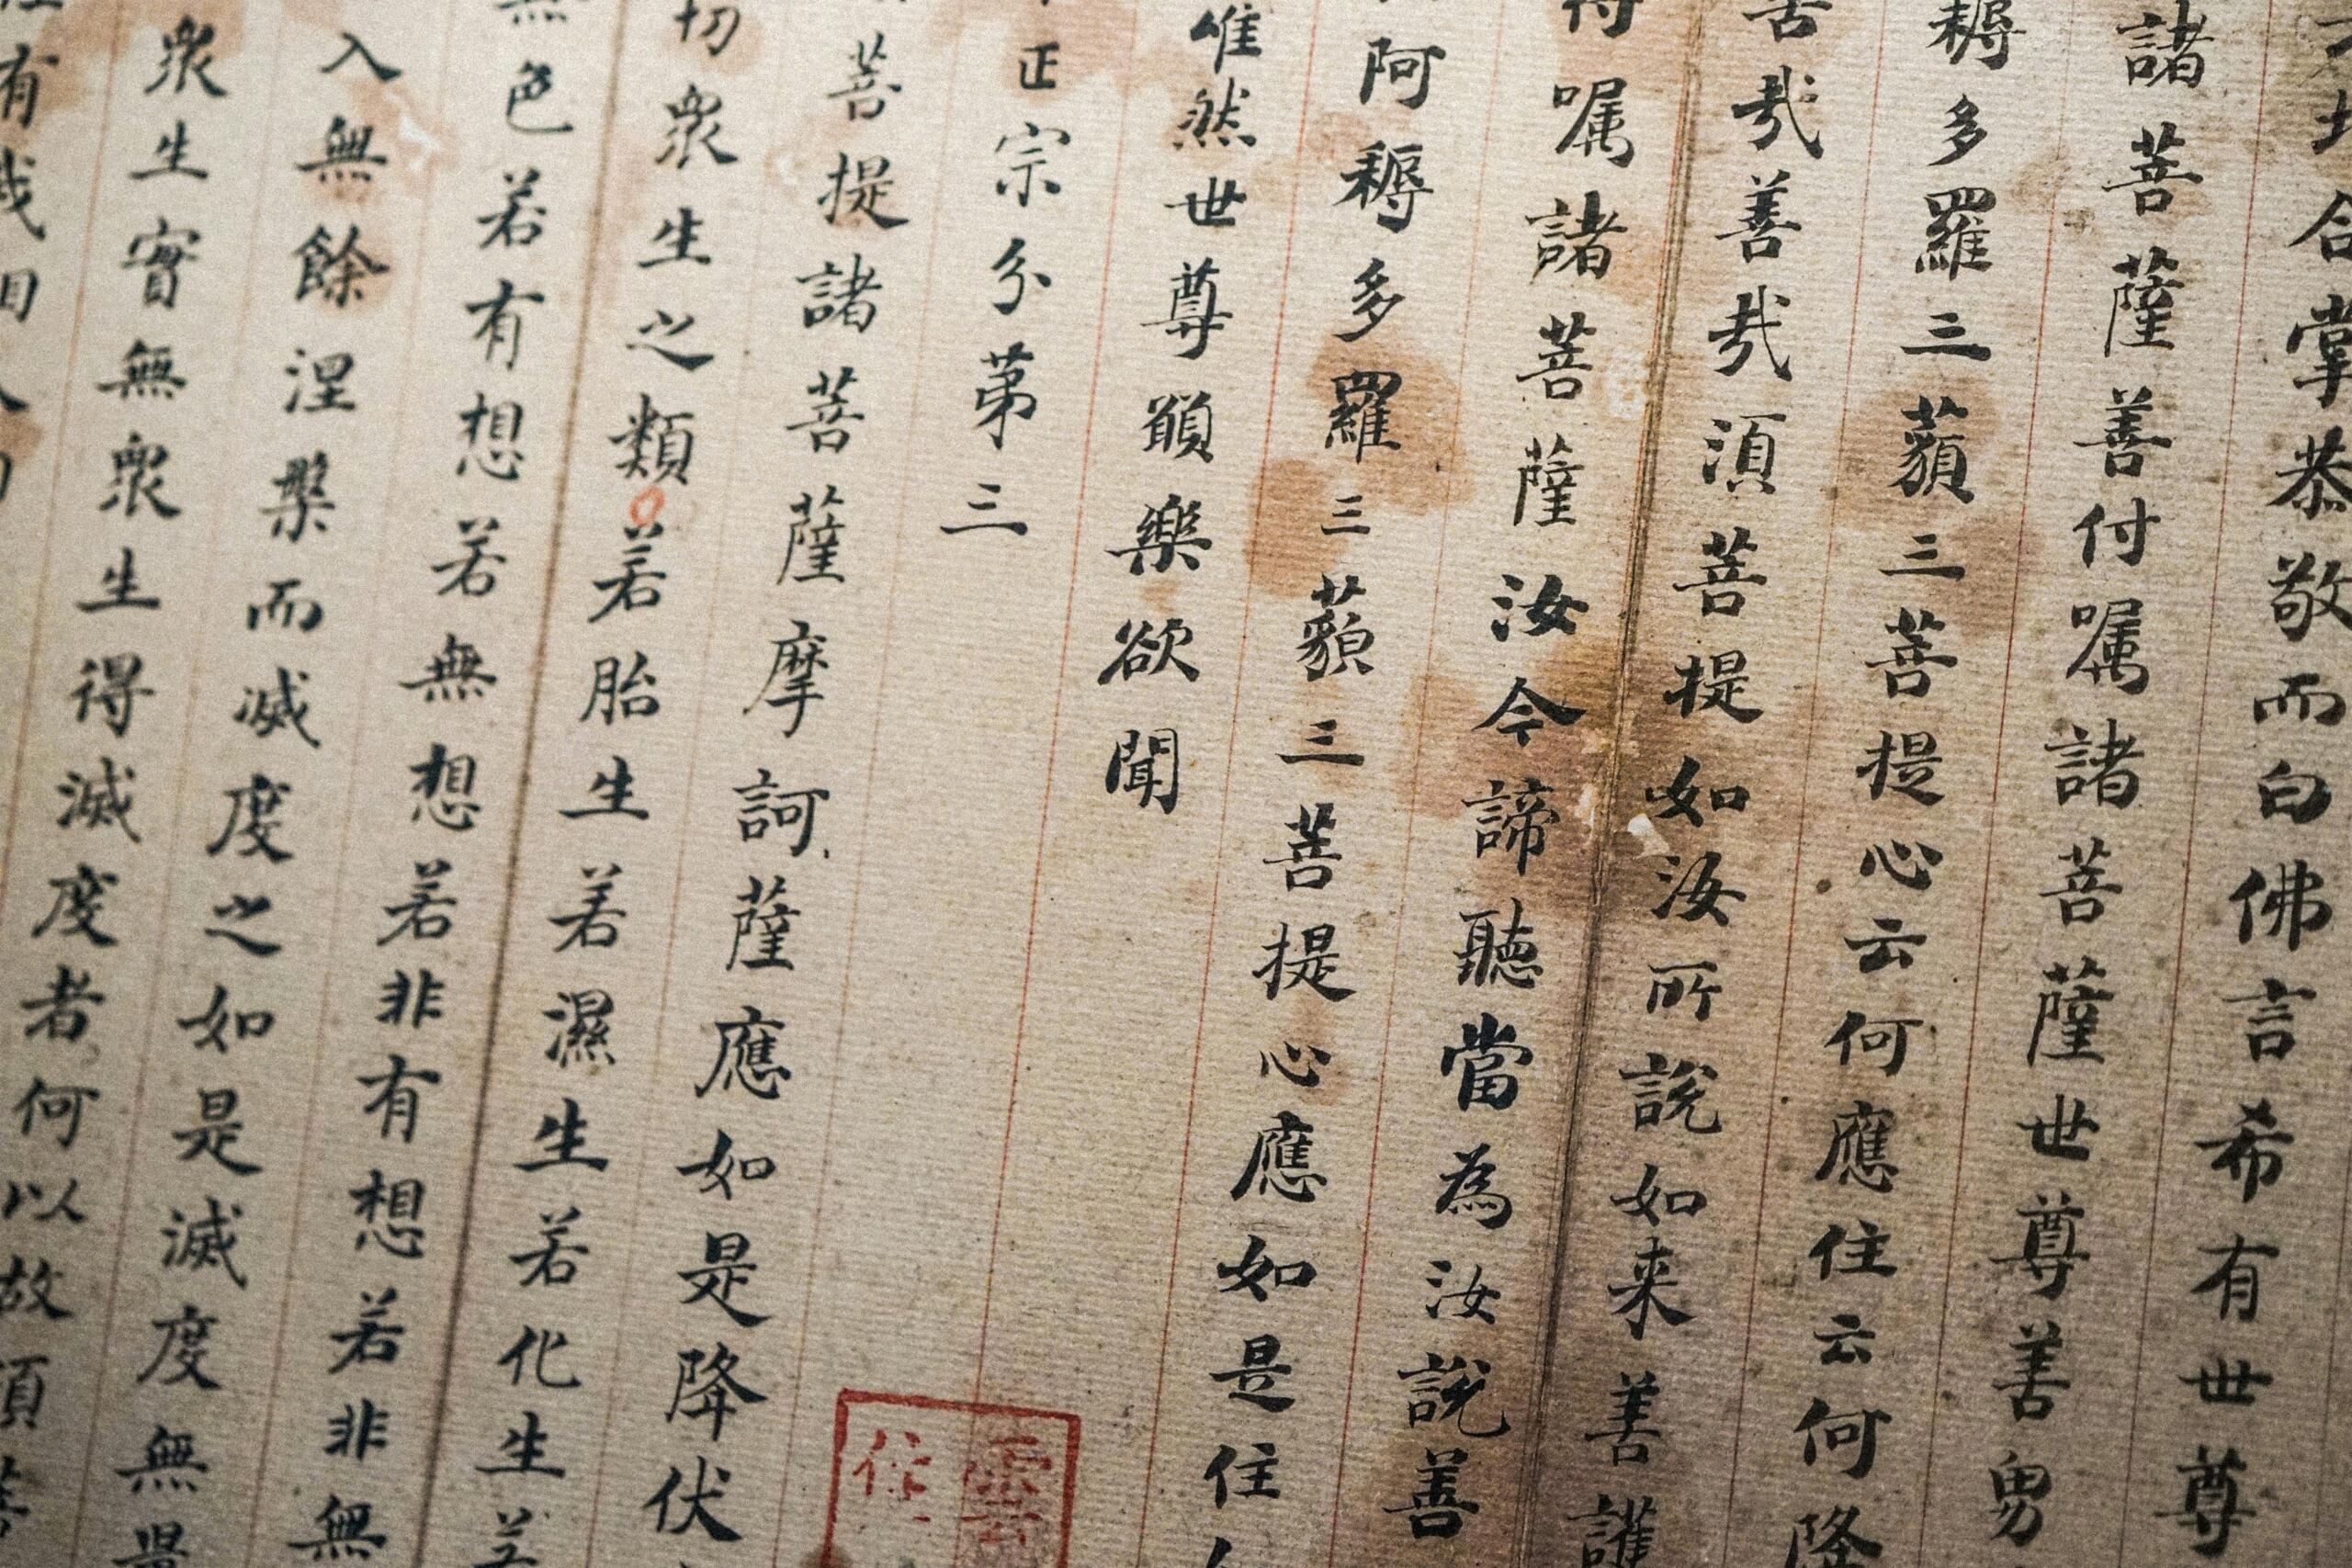 地合掌恭敬而白佛言希有世尊
諸菩薩善付嘱諸菩薩世尊善男
耨多羅三藐三菩提心云何應住云何降
善哉善哉須菩提如汝所說如来善護
嘱諸菩薩汝今諦聽當為汝說善
阿耨多羅三藐三菩提心應如是住
唯然世尊願樂欲聞
正宗分第三
菩提諸菩薩摩訶薩應如是降伏
切衆生之類若胎生若濕生若化生若
無色若有想若無想若非有想若非無
入無餘涅槃而滅度之如是滅度無量
衆生實無衆生得滅度者何以故須菩
有我相人相
雲
住